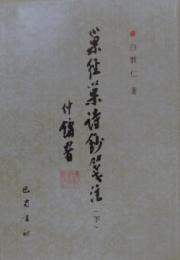 白敦仁 著
巢经巢诗钞笺注
(下)
巴蜀书社